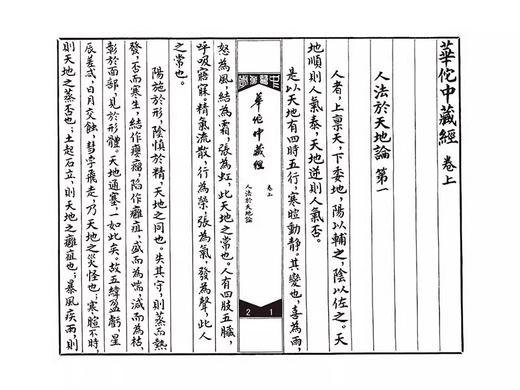 華佗中藏經 卷上
人法於天地論 第一
人者,上禀天,下委地,陽以輔之,陰以佐之。天
地順則人氣泰,天地逆則人氣否。
是以天地有四時五行,寒暄動靜。其變也,喜為雨,
華佗中藏經 卷上 人法於天地論
2 1
怒為風,結為霜,張為虹,此天地之常也。人有四肢五臟,
呼吸寤寐,精氣流散,行為榮,張為氣,發為聲,此人
之常也。
陽施於形,陰慎於精,天地之同也。失其守,則蒸而熱
發,否而寒生,結作癭瘤,陷作癰疽,盛而為喘,減而為枯,
彰於面部,見於形體。天地通塞,一如此矣。故五緯盈虧,星
辰差忒,日月交蝕,彗孛飛走,乃天地之災怪也;寒暄不時,
則天地之蒸否也;土起石立,則天地之癰疽也;暴風疾雨,則